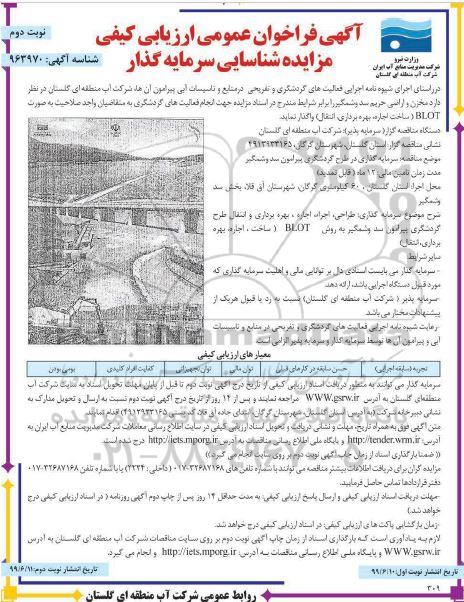 نوبت دوم
شناسه آگهی: ۹۶۳۹۷۰
آگهی فراخوان عمومی ارزیابی کیفی
مزایده شناسایی سرمایه گذار
وزارت نیرو
شرکت مدیریت منابع آب ایران
شرکت آب منطقه ای گلستان
درراستای اجرای شیوه نامه اجرایی فعالیت های گردشگری و تفریحی درمنابع و تاسیسات آبی پیرامون آن ها، شرکت آب منطقه‌ای گلستان در نظر
دارد مخزن و اراضی حریم سد وشمگیر را برابر شرایط مندرج در اسناد مزایده جهت انجام فعالیت های گردشگری به متقاضیان واجد صلاحیت به صورت
BLOT ( ساخت، اجاره، بهره برداری، انتقال) واگذار نماید.
دستگاه مناقصه گزار( سرمایه پذیر): شرکت آب منطقه‌ای گلستان
نشانی مناقصه گزار: استان گلستان، شهرستان گرگان، ۴۹۱۳۹۳۴۱۶۵
موضع مناقصه: سرمایه گذاری در طرح گردشگری پیرامون سد وشمگیر
مدت زمان تامین مالی: ۱۲ ماه ( قابل تمدید)
محل اجرا: استان گلستان ، ۶۰ کیلومتری گرگان، شهرستان آق قلا، بخش سد
وشمگیر
شرح موضوع سرمایه گذاری: طراحی، اجرا، اجاره ، بهره برداری و انتقال طرح
گردشگری پیرامون سد وشمگیر به روش BLOT ( ساخت ، اجاره، بهره
برداری، انتقال)
سایر شرایط:
- سرمایه گذار می بایست اسنادی دال بر توانایی مالی و اهلیت سرمایه گذاری که
مورد قبول دستگاه اجرایی باشد، ارائه دهد.
-سرمایه پذیر ( شرکت آب منطقه ای گلستان) نسبت به رد یا قبول هریک از
پیشنهادات مختار می باشد.
- رعایت شیوه نامه اجرایی فعالیت های گردشگری و تفریحی در منابع و تاسیسات
آبی و پیرامون آن ها توسط سرمایه گذار و سرمایه پذیر الزامی است.
معیار های ارزیابی کیفی
تجربه (سابقه اجرایی) حسن سابقه در کارهای قبلی توان مالی توان تجهیزاتی کفایت افراد کلیدی بومی بودن
سرمایه گذار می توانند به منظور دریافت اسناد ارزیابی کیفی از تاریخ درج آگهی نوبت دوم تا قبل از پایان مهلت تحویل اسناد به سایت شرکت آب
منطقه‌ای گلستان به آدرس WWW.gsrw.ir مراجعه نمایند و پس از ۱۴ روز از تاریخ درج آگهی نوبت دوم نسبت به ارسال و تحویل مدارک به
نشانی دبیرخانه شرکت (به آدرس استان گلستان شهرستان گرگان، ابتدای جاده آق قلا، کدپستی ۴۹۱۳۹۳۴۱۶۵) اقدام نمایند.
متن آگهی فوق به همراه تاریخ، مهلت و نشانی دریافت و تحویل اسناد ارزیابی کیفی در سایت اطلاع رسانی معاملات شرکت مدیریت منابع آب ایران به
آدرس: http://tender.wrm.ir و پایگاه ملی اطلاع رسانی مناقصات به آدرس: http://iets.mporg.ir درج شده است.
(( ضمنا بارگذاری اسناد از زمان چاپ آگهی نوبت دوم بر روی سایت انجام می گیرد.))
مزایده گران برای دریافت اطلاعات بیشتر مناقصه می توانند با شماره تلفن های ۳۲۶۸۷۱۶۸-۰۱۷ ( داخلی : ۲۲۲۴) یا با شماره تلفن ۳۲۶۸۷۱۶۸-۰۱۷
دفتر قراردادها تماس حاصل فرمایید.
-مهلت دریافت اسناد ارزیابی کیفی و ارسال پاسخ ارزیابی کیفی: به مدت حداقل ۱۴ روز پس از چاپ دوم آگهی روزنامه ( در اسناد ارزیابی کیفی درج
خواهد شد.)
-زمان بازگشایی پاکت ها ی ارزیابی کیفی: در اسناد ارزیابی کیفی درج خواهد شد.
لازم به یاد آوری است کـه بارگذاری اسناد از زمان چاپ آگهی نوبت دوم بر روی سایت مناقصات شرکت آب منطقه ای گلستان به آدرس
WWW.gsrw.ir و پایگاه ملی اطلاع رسانی مناقصات بـه آدرس: http://iets.mporg.ir و انجام می گیرد.
تاریخ انتشار نوبت اول: ۹۹/۶/۱۰
تاریخ انتشار نوبت دوم: ۹۹/۶/۱۱
۳۰۹
روابط عمومی شرکت آب منطقه ای گلستان